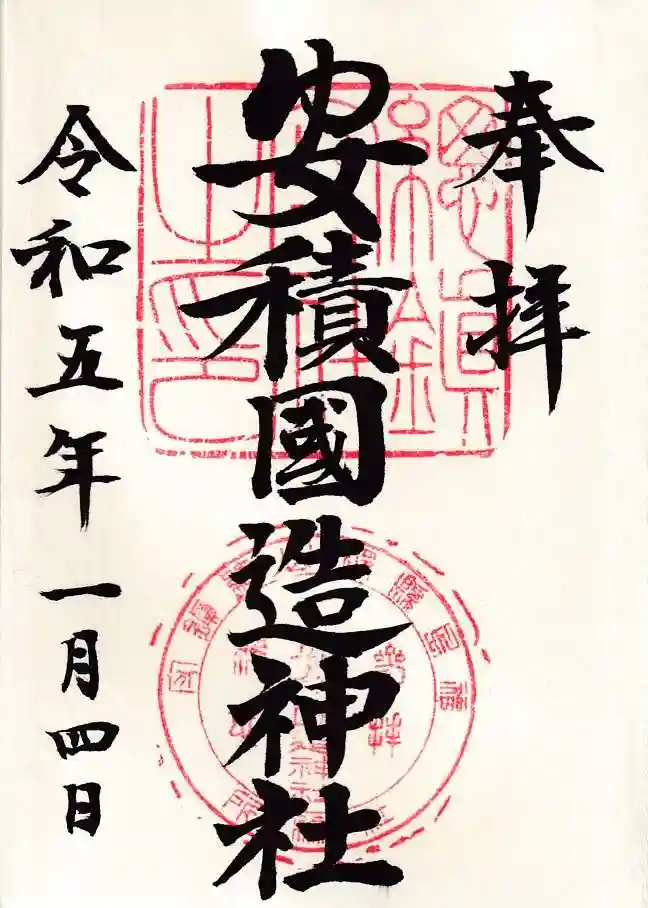 奉拝
安積國造神社
令和五年一月四日